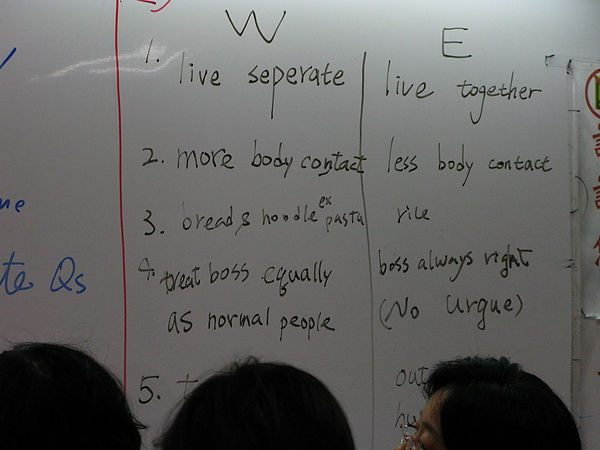 W E
1. live seperate live together
2. more body contact less body contact
3. bread, noodle ex pasta rice
4. treat boss equally boss always right
as normal people (No Urgue)
5.
out
Qs